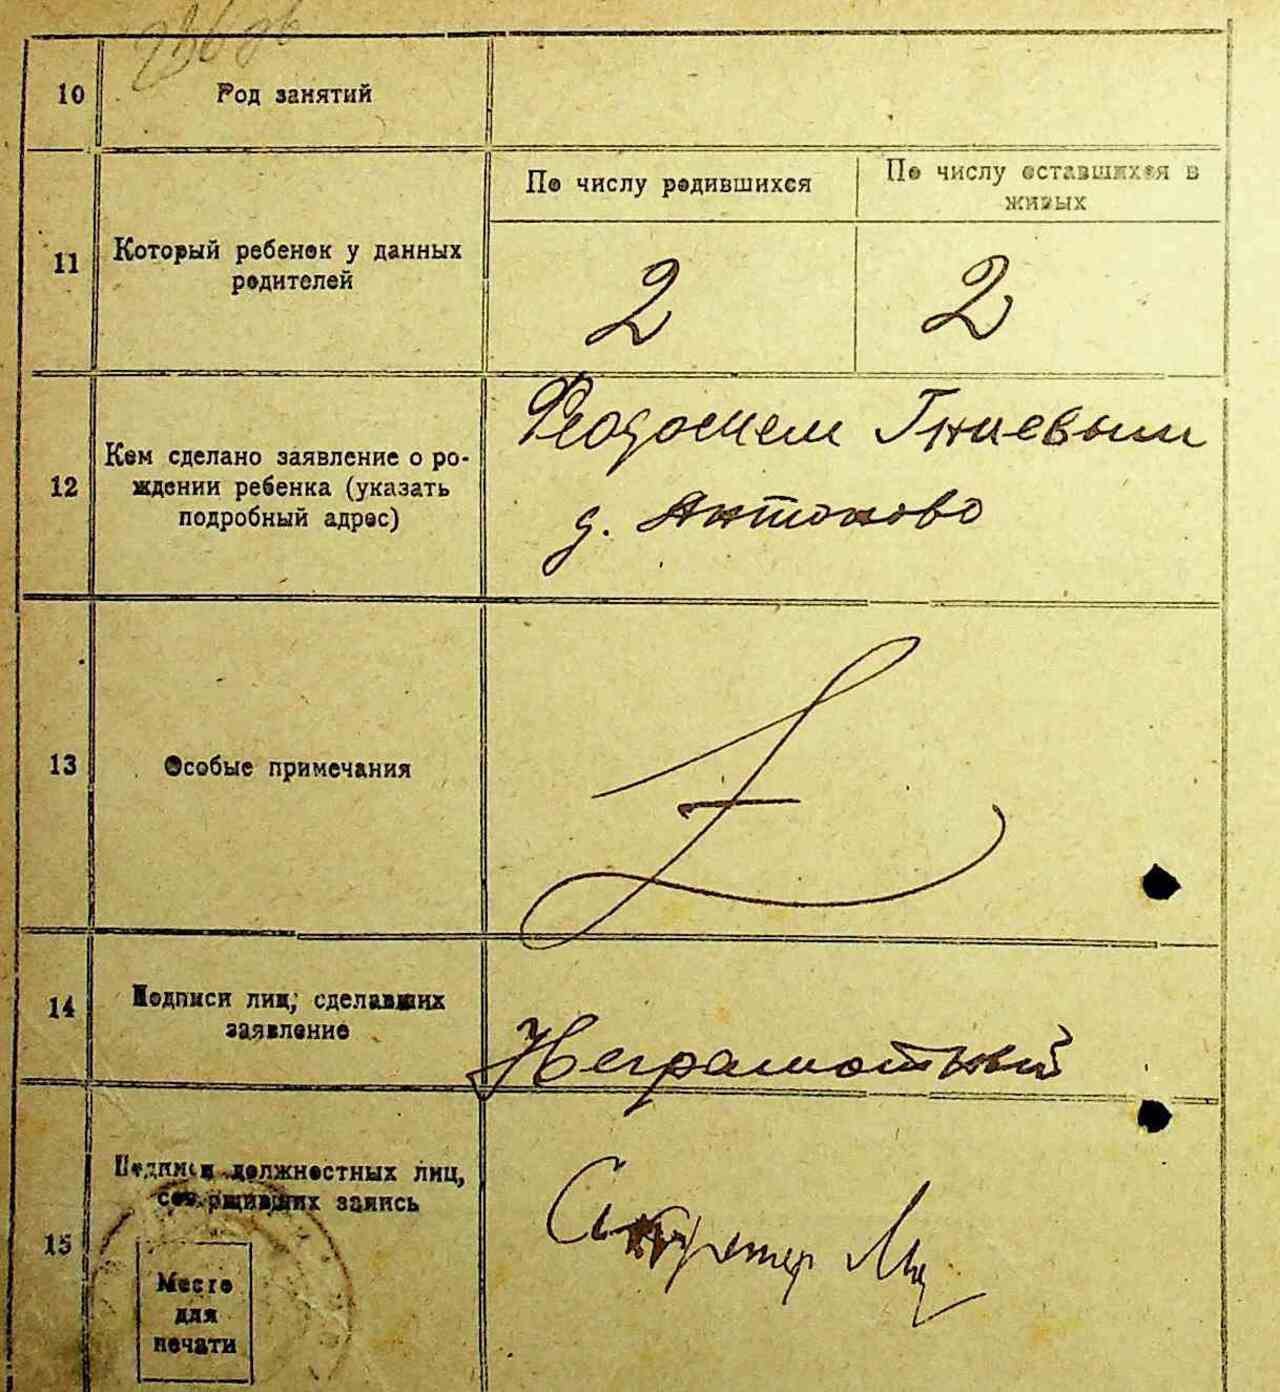 10
Род занятий
11
Который ребенок у данных
родителей
По числу родившихся
По числу оставшихся в
живых
2
2
12
Кем сделано заявление о ро-
ждении ребенка (указать
подробный адрес)
Феодосием Гниевым
д. Антоново
13
Особые примечания
14
Подписи лиц, сделавших
заявление
Неграмотный
15
Подписи должностных лиц,
совершивших запись
Место
для
печати
Секретер